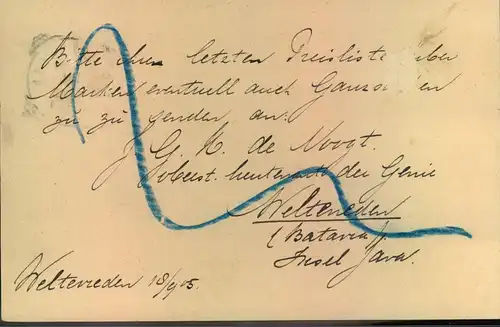 Bitte ihre letzten Preisliste über
Marken eventuell auch Ganzsachen
zu zu senden an:
J. G. H. de Voogt.
Oberst. lieutenant der Genie
Weltevreden
(Batavia).
Insel Java.
Weltevreden 18/9 05.